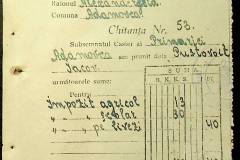 Raionul Alexandria
Comuna Adamovca
Chitanța Nr. 53.
Subsemnatul Casier al Primariei
Adamovca am primit dela Pustovoit
Iacov
SUMA
următoarele sume:
Pentru
Impozit agricol 13
" " școlar 30
" " pe livezi 40
40